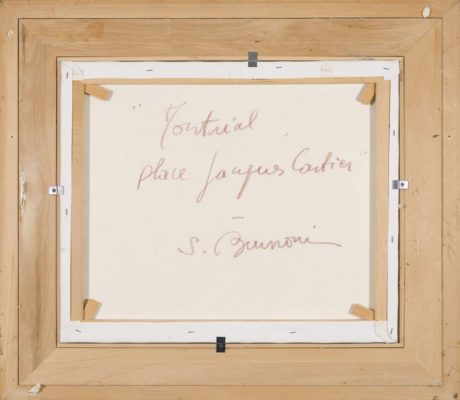 "Montréal,
place Jacques Cartier"
—
S. Brunoni